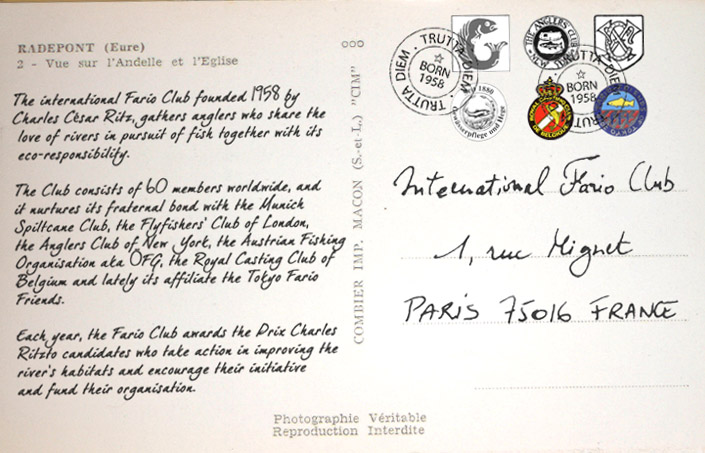 RADEPONT (Eure)
2 - Vue sur l'Andelle et l'Eglise
The international Fario Club founded 1958 by
Charles César Ritz, gathers anglers who share the
love of rivers in pursuit of fish together with its
eco-responsibility.
The Club consists of 60 members worldwide, and
it nurtures its fraternal bond with the Munich
Spiltcane Club, the Flyfishers' Club of London,
the Anglers Club of New York, the Austrian Fishing
Organisation aka OFG, the Royal Casting Club of
Belgium and lately its affiliate the Tokyo Fario
Friends.
Each year, the Fario Club awards the Prix Charles
Ritzto candidates who take action in improving the
river's habitats and encourage their initiative
and fund their organisation.
COMBIER IMP. MACON (S.-et-L.) "CIM"
TRUTTA DIEM · TRUTTA DIEM ·
BORN
1958
THE ANGLERS CLUB
1880
Gewässerpflege und Hege
DE BELGIQUE
BORN
1958
International Fario Club
1, rue Mignet
PARIS 75016 FRANCE
Photographie Véritable
Reproduction Interdite